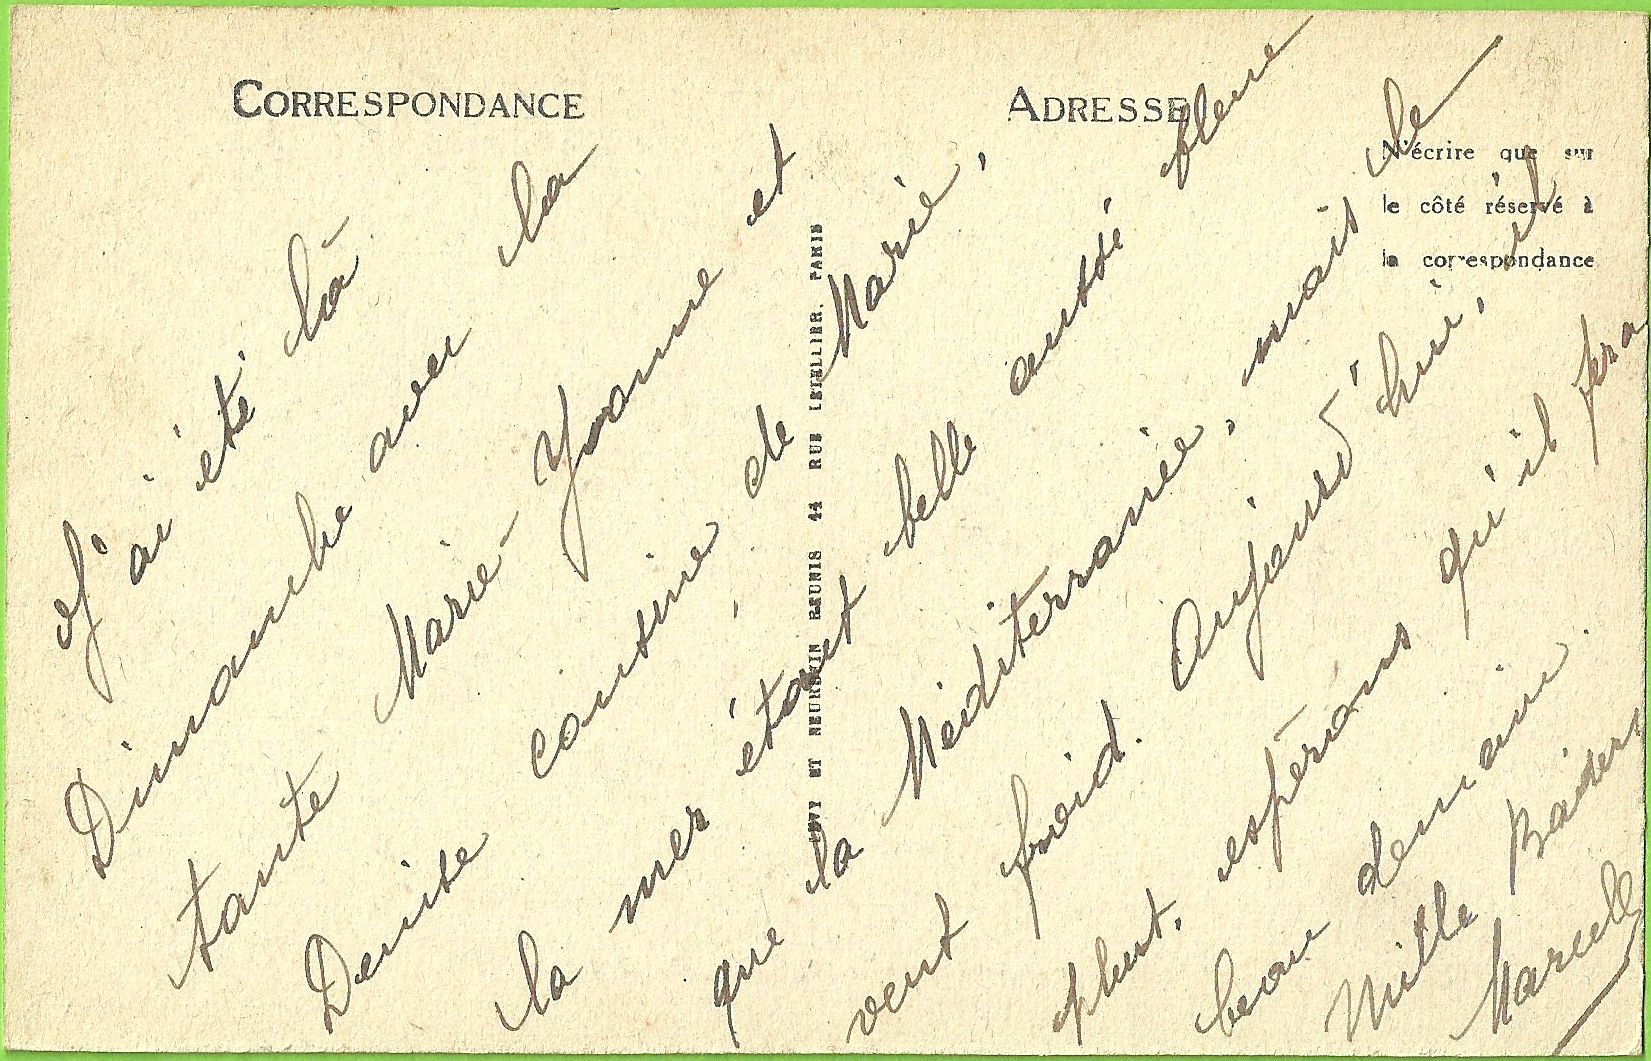 CORRESPONDANCE
ADRESSE
N'écrire que sur
le côté réservé à
la correspondance
LÉVY ET NEURDEIN RÉUNIS 44 RUE LETELLIER. PARIS
J'ai été là
Dimanche avec la
tante Marie-Yvonne et
Denise cousine de Marie,
la mer étant belle aussi bleue
que la Méditerranée, mais le
vent froid. Aujourd'hui, il
pleut, espérons qu'il fera
beau demain.
Mille Baisers
Marcelle